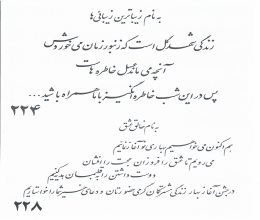 به نام زیباترین زیبائی‌ها
زندگی شهد گل است که زنبور زمان می‌خوردش
آنچه می‌ماند عسل خاطره‌هاست
پس در این شب خاطره‌انگیز با ما همراه باشید...
۲۲۴
به نام خالق عشق
هم اکنون می‌خواهیم بهاری نو آغاز نمائیم
می‌رویم تا عشق را فروزان محبت را افشان
دوست داشتن را قلبمان هدیه کنیم
در جشن آغاز بهار زندگی مشترکمان گرمی حضورتان و دعای خیر شما را خواستاریم
۲۲۸